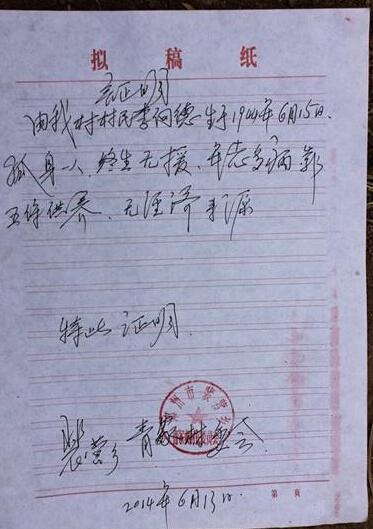 拟稿纸
证明
由我村村民李何德生于1944年6月15日.
孤身一人,终生无援,年老多病,靠
五保供养,无经济来源
特此证明.
裴营乡 青冢村委会
2014年6月13日.
第 页